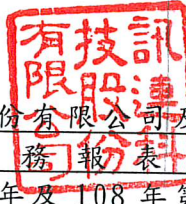 訊連科
技股份
有限公司
份有限公司及
務報表
年及 108 年